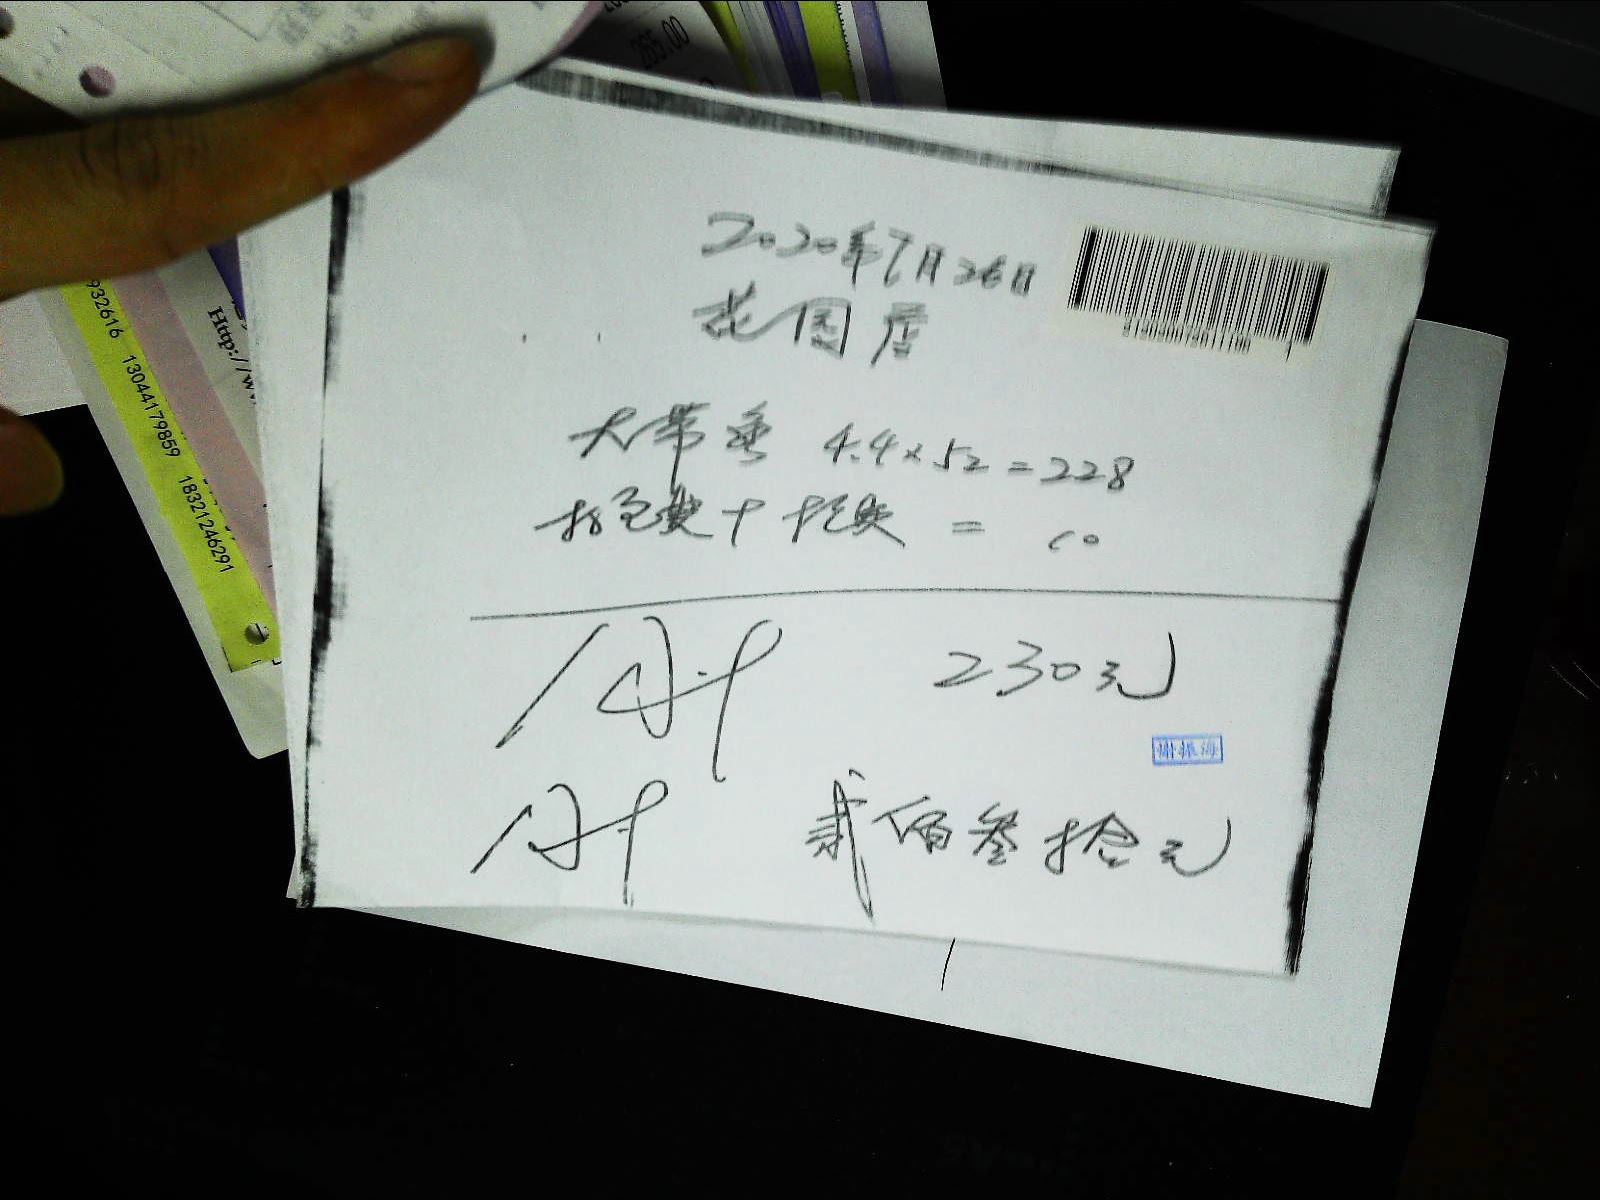 265.00
932616 13044179859 18321246291
Http://w
2020年7月26日
花园店
大带鱼 4.4×52=228
打包费+托运费 = 10
合计 230元
谢振海
合计 贰佰叁拾元